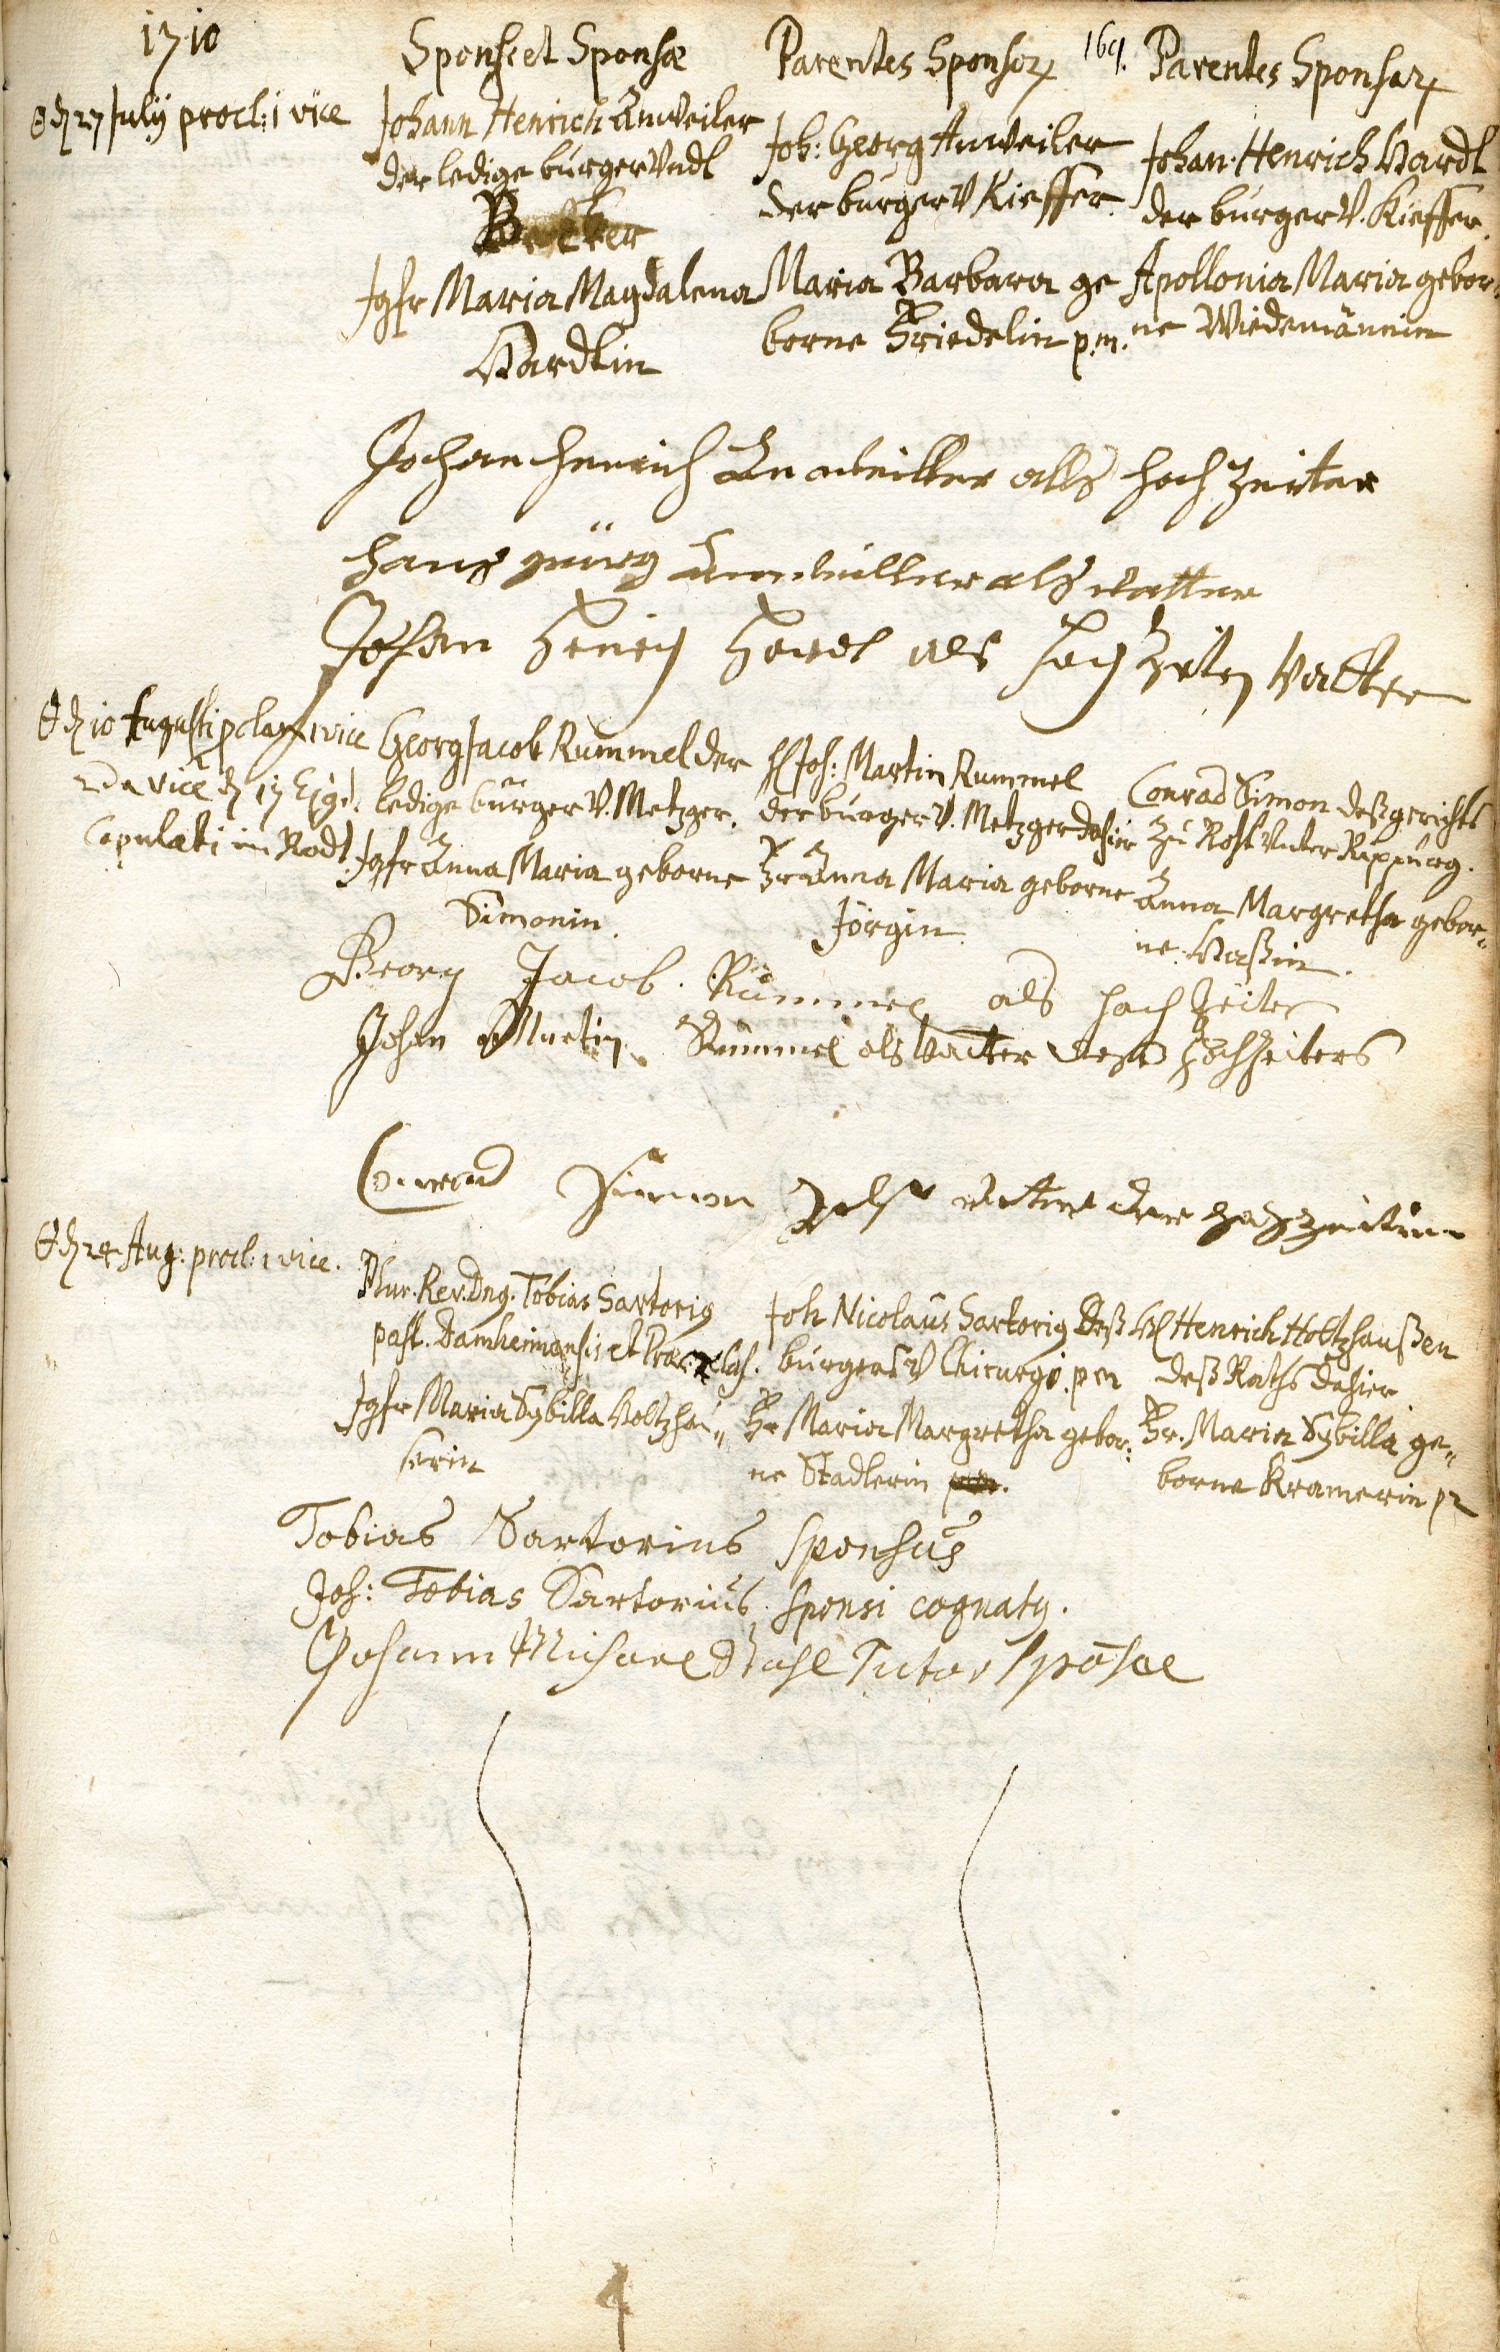 1710
Sponsi et Sponsæ
Parentes Sponsorꝝ
169.
Parentes Sponsarꝝ
d 27 Julij procl: 1 vice
Johann Henrich Anweiler
der ledige burger Undt
Becker
Jgfr Maria Magdalena
Hardtin
Joh: Georg Anweiler
der burger V Kieffer.
Maria Barbara ge
borne Friedelin p.m.
Johan: Henrich Hardt
der burger V. Kieffer.
Apollonia Maria gebor-
ne Wiedemännin
Johan Henrich Anweiller alls hoch Zeiter
hans görg Anweiller als vatter
Johan Henrich Hardt als hochzeiterin Vatter
d 10 Augusti proclam 1 vice
2da vice d 17 Ejusd.
Copulati in Rodt.
Georg Jacob Rummel der
ledige bürger V. Metzger.
Jgfr Anna Maria geborne
Simonin.
H Joh: Martin Rummel
der burger V. Metzger dahier
Fr Anna Maria geborne
Jörgin
Conrad Simon deß gerichts
zu Roth Unter Rippurg.
Anna Margretha gebor-
ne Haßin.
Georg Jacob Rummel als hoch Zeiter
Johan Martin Rummel als Vatter deß hochzeiters
Conrad Simon Als vatter der hochzeiterin
d 24 Aug: procl: 1 vice.
Plur. Rev. Dn9. Tobias Sartori9
past. Damheimensis et
Jgfr Maria Sybilla Holtzhau-
serin
Joh Nicolaus Sartori9 deß
burgers V Chirurgi. pm
Fr Maria Margretha gebor-
ne Stadlerin
H Henrich Holtzhaußen
deß Raths dahier
Fr. Maria Sybilla ge-
borne Kramerin
Tobias Sartorius Sponsus
Joh: Tobias Sartorius. Sponsi cognat9.
Johann Michael Stahl Tutor Spōsae
4